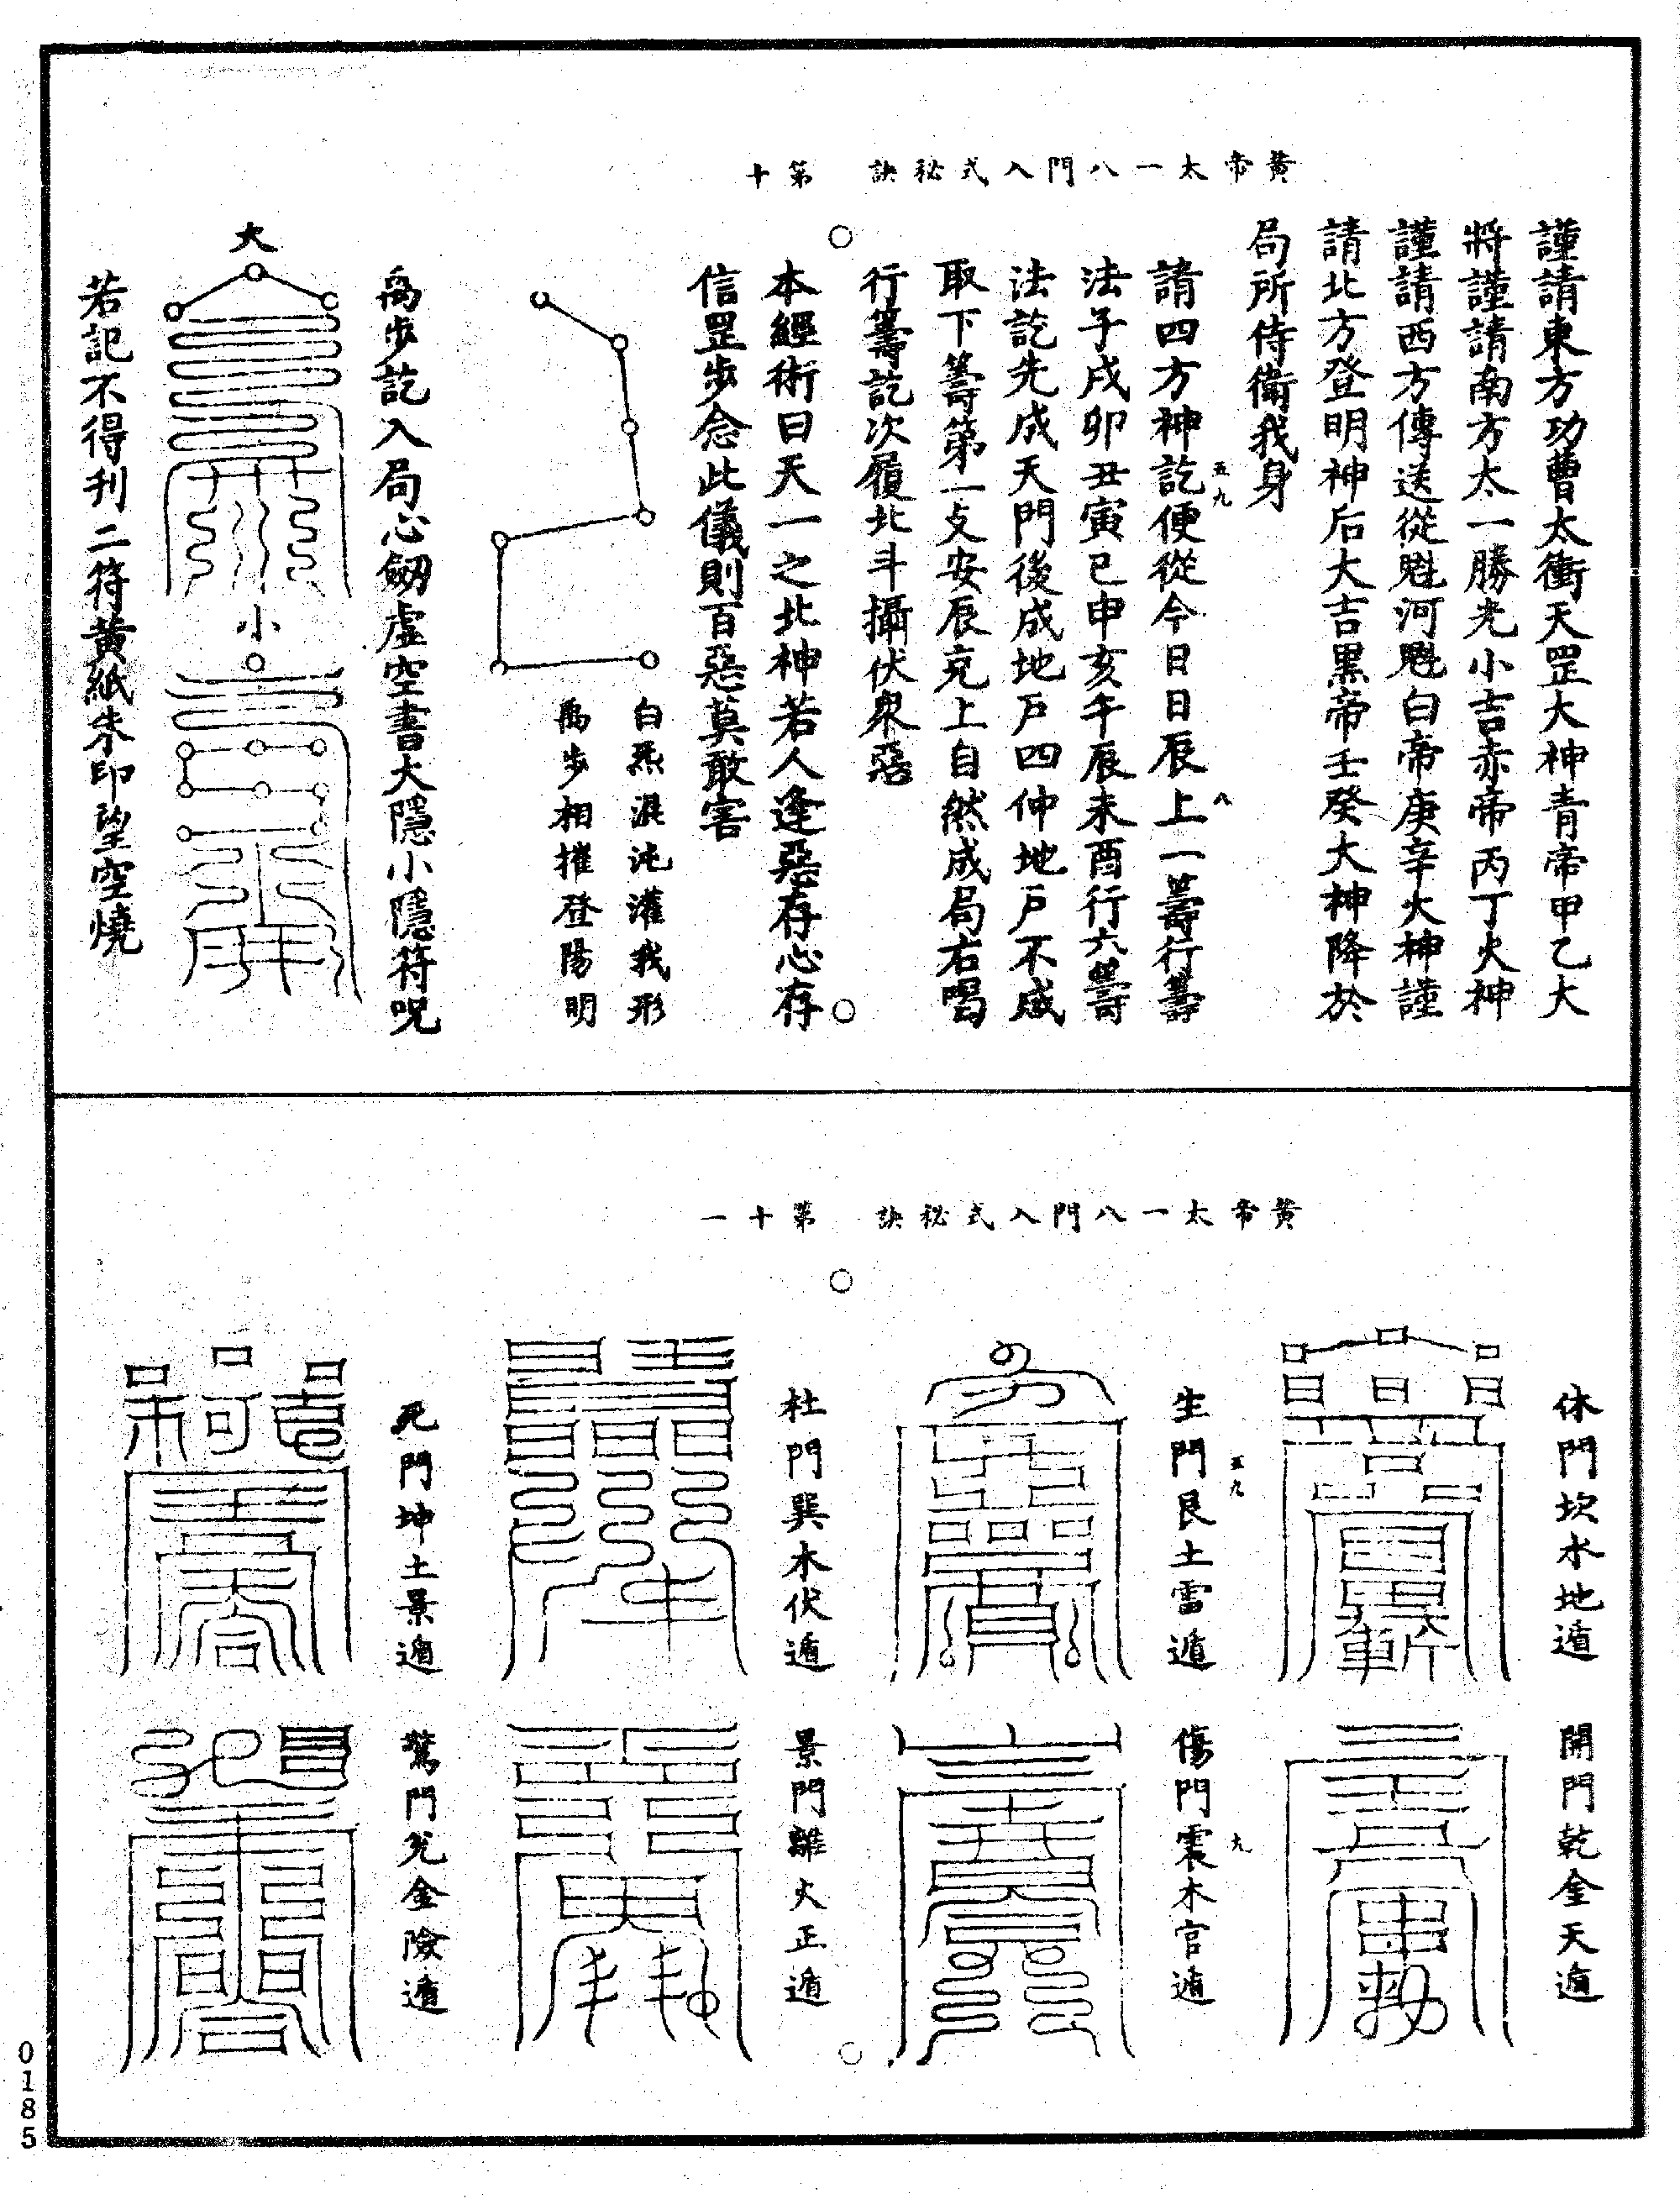 黃帝太一八門入式祕訣　第十
謹請東方功曹太衝天罡大神青帝甲乙大
將謹請南方太一勝光小吉赤帝丙丁火神
謹請西方傳送從魁河魁白帝庚辛火神謹
請北方登明神后大吉黑帝壬癸大神降於
局所侍衛我身
五九
八
請四方神訖便從今日日辰上一籌行籌
法子戌卯丑寅巳申亥午辰未酉行六籌
法訖先成天門後成地戶四仲地戶不成
取下籌第一攴安辰克上自然成局右唱
行籌訖次履北斗攝伏衆惡
本經術曰天一之北神若人逢惡存心存
信罡步念此儀則百惡莫敢害
白炁混沌灌我形
禹步相摧登陽明
禹步訖入局心劒虛空書大隱小隱符呪
大
小
若記不得刊二符黃紙朱印望空燒
黃帝太一八門入式祕訣　第十一
休門坎水地遁
開門乾金天遁
生門艮土雷遁
五九
傷門震木官遁
九
杜門巽木伏遁
景門離火正遁
死門坤土景遁
驚門兌金險遁
0185